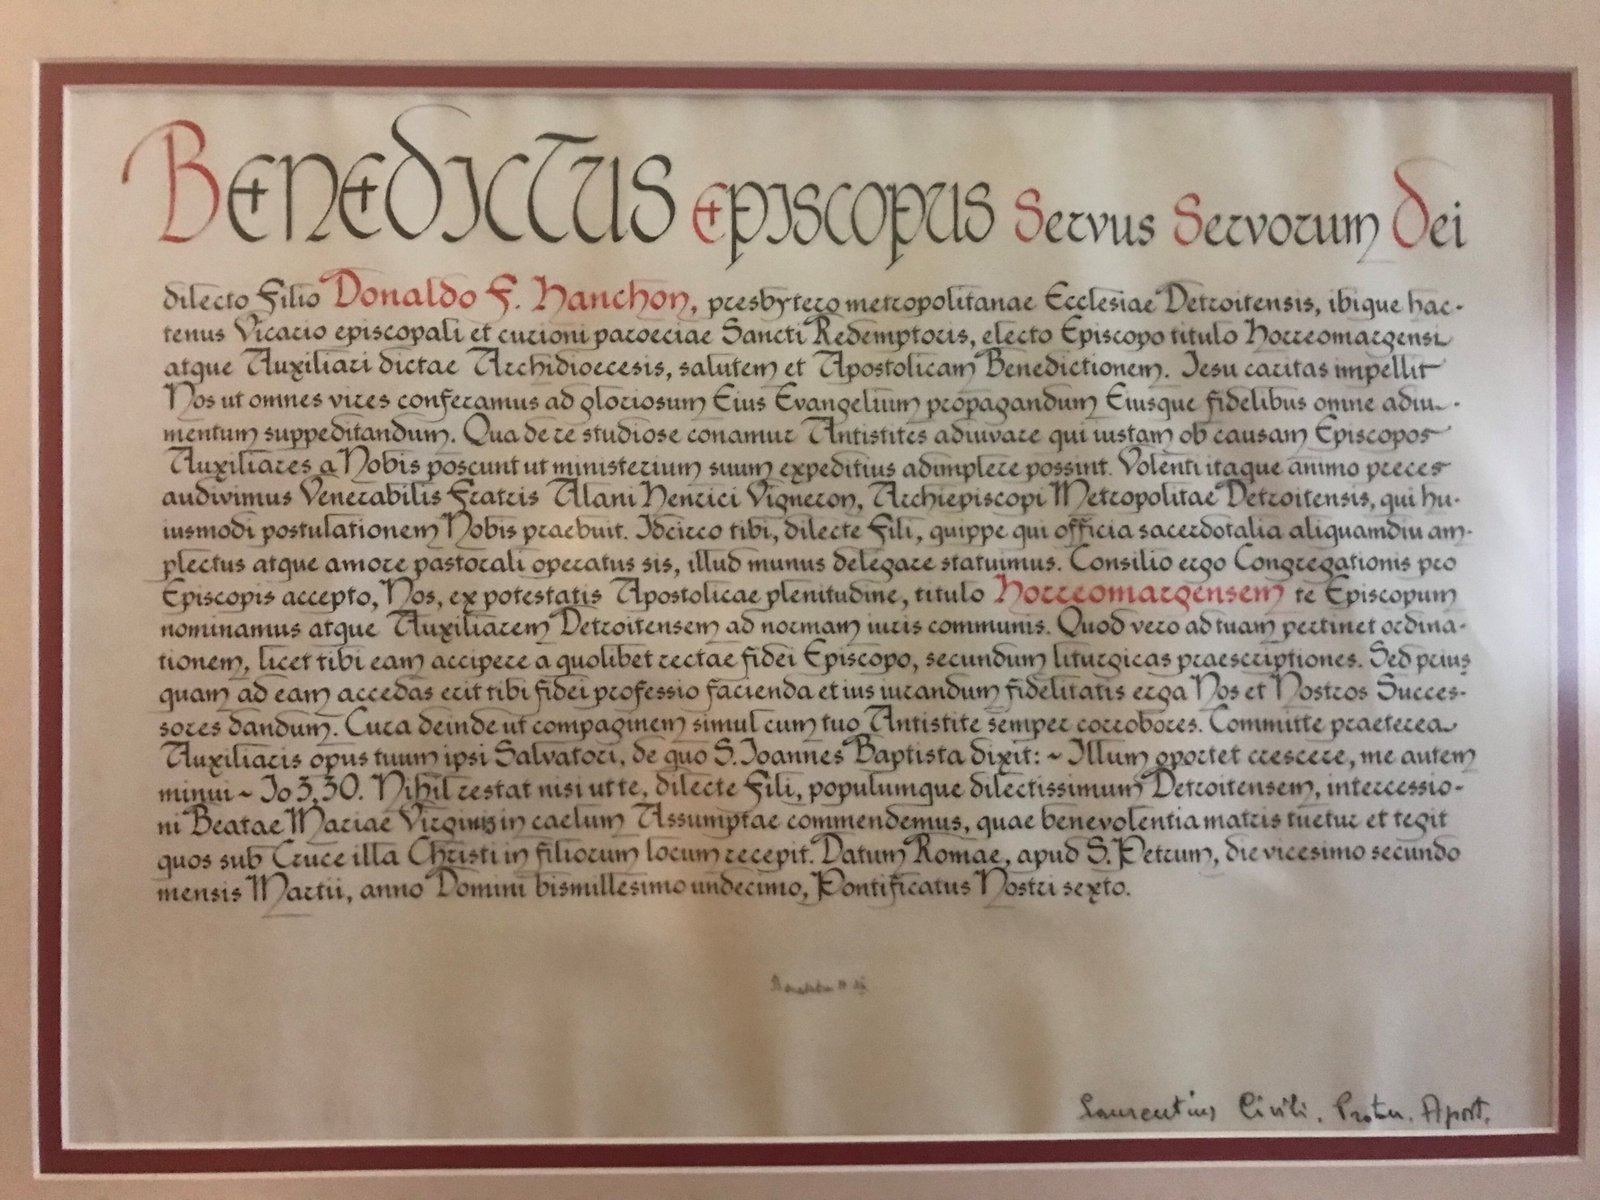 Benedictus Episcopus Servus Servorum Dei
dilecto Filio Donaldo F. Hanchon, presbytero metropolitanae Ecclesiae Detroitensis, ibique hac-
tenus Vicario episcopali et curioni paroeciae Sancti Redemptoris, electo Episcopo titulo Horreomargensi
atque Auxiliari dictae Archidioecesis, salutem et Apostolicam Benedictionem. Iesu caritas impellit
Nos ut omnes vires conferamus ad gloriosum Eius Evangelium propagandum Eiusque fidelibus omne adiu-
mentum suppeditandum. Qua de re studiose conamur Antistites adiuvare qui iustam ob causam Episcopos
Auxiliares a Nobis poscunt ut ministerium suum expeditius adimplere possint. Volenti itaque animo preces
audivimus Venerabilis Fratris Alani Henrici Vigneron, Archiepiscopi Metropolitae Detroitensis, qui hu-
iusmodi postulationem Nobis praebuit. Idcirco tibi, dilecte Fili, quippe qui officia sacerdotalia aliquamdiu am-
plectus atque amore pastorali operatus sis, illud munus delegare statuimus. Consilio ergo Congregationis pro
Episcopis accepto, Nos, ex potestatis Apostolicae plenitudine, titulo Horreomargensem te Episcopum
nominamus atque Auxiliarem Detroitensem ad normam iuris communis. Quod vero ad tuam pertinet ordina-
tionem, licet tibi eam accipere a quolibet rectae fidei Episcopo, secundum liturgicas praescriptiones. Sed prius
quam ad eam accedas erit tibi fidei professio facienda et ius iurandum fidelitatis erga Nos et Nostros Succes-
sores dandum. Cura deinde ut compaginem simul cum tuo Antistite semper corrobores. Committe praeterea
Auxiliaris opus tuum ipsi Salvatori, de quo S. Ioannes Baptista dixit: ~ Illum oportet crescere, me autem
minui ~ Io 3,30. Nihil restat nisi ut te, dilecte Fili, populumque dilectissimum Detroitensem, intercessio-
ni Beatae Mariae Virginis in caelum Assumptae commendemus, quae benevolentia matris tuetur et tegit
quos sub Cruce illa Christi in filiorum locum recepit. Datum Romae, apud S. Petrum, die vicesimo secundo
mensis Martii, anno Domini bismillesimo undecimo, Pontificatus Nostri sexto.
Laurentius Civili, Proton. Apost.